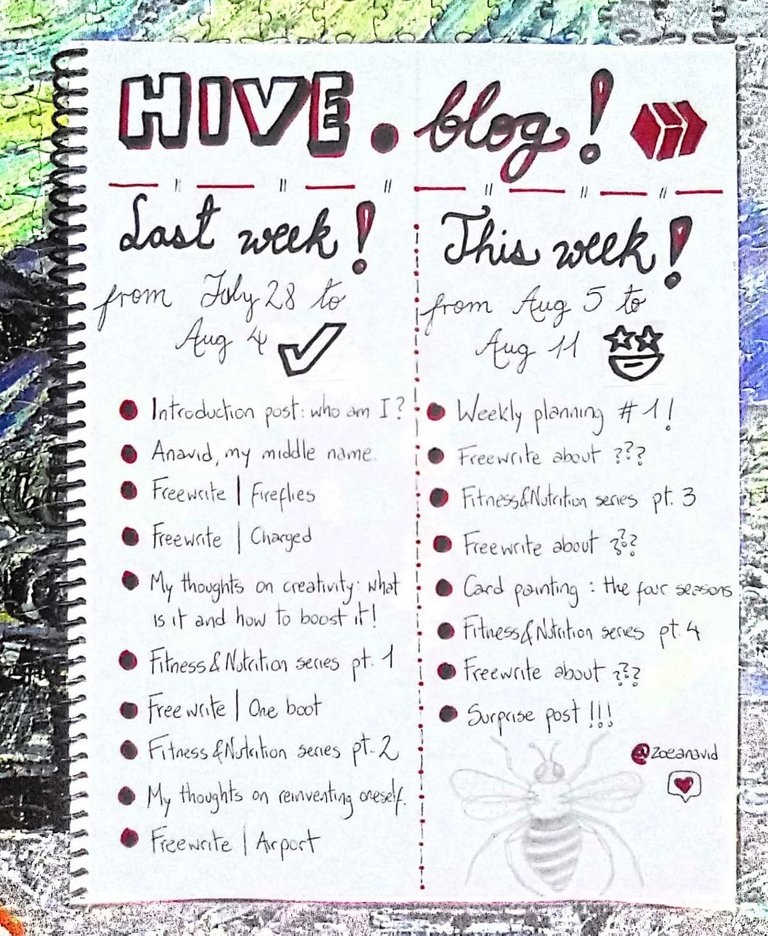 HIVE.blog!
Last week!
from July 28 to
Aug 4
Introduction post: who am I?
Anavid, my middle name.
Freewrite | Fireflies
Freewrite | Charged
My thoughts on creativity: what
is it and how to boost it!
Fitness&Nutrition series pt. 1
Freewrite | One boot
Fitness&Nutrition series pt. 2
My thoughts on reinventing oneself.
Freewrite | Airport
This week!
from Aug 5 to
Aug 11
Weekly planning #1!
Freewrite about ???
Fitness&Nutrition series pt. 3
Freewrite about ???
Card painting : the four seasons
Fitness&Nutrition series pt. 4
Freewrite about ???
Surprise post !!!
@zoeanavid